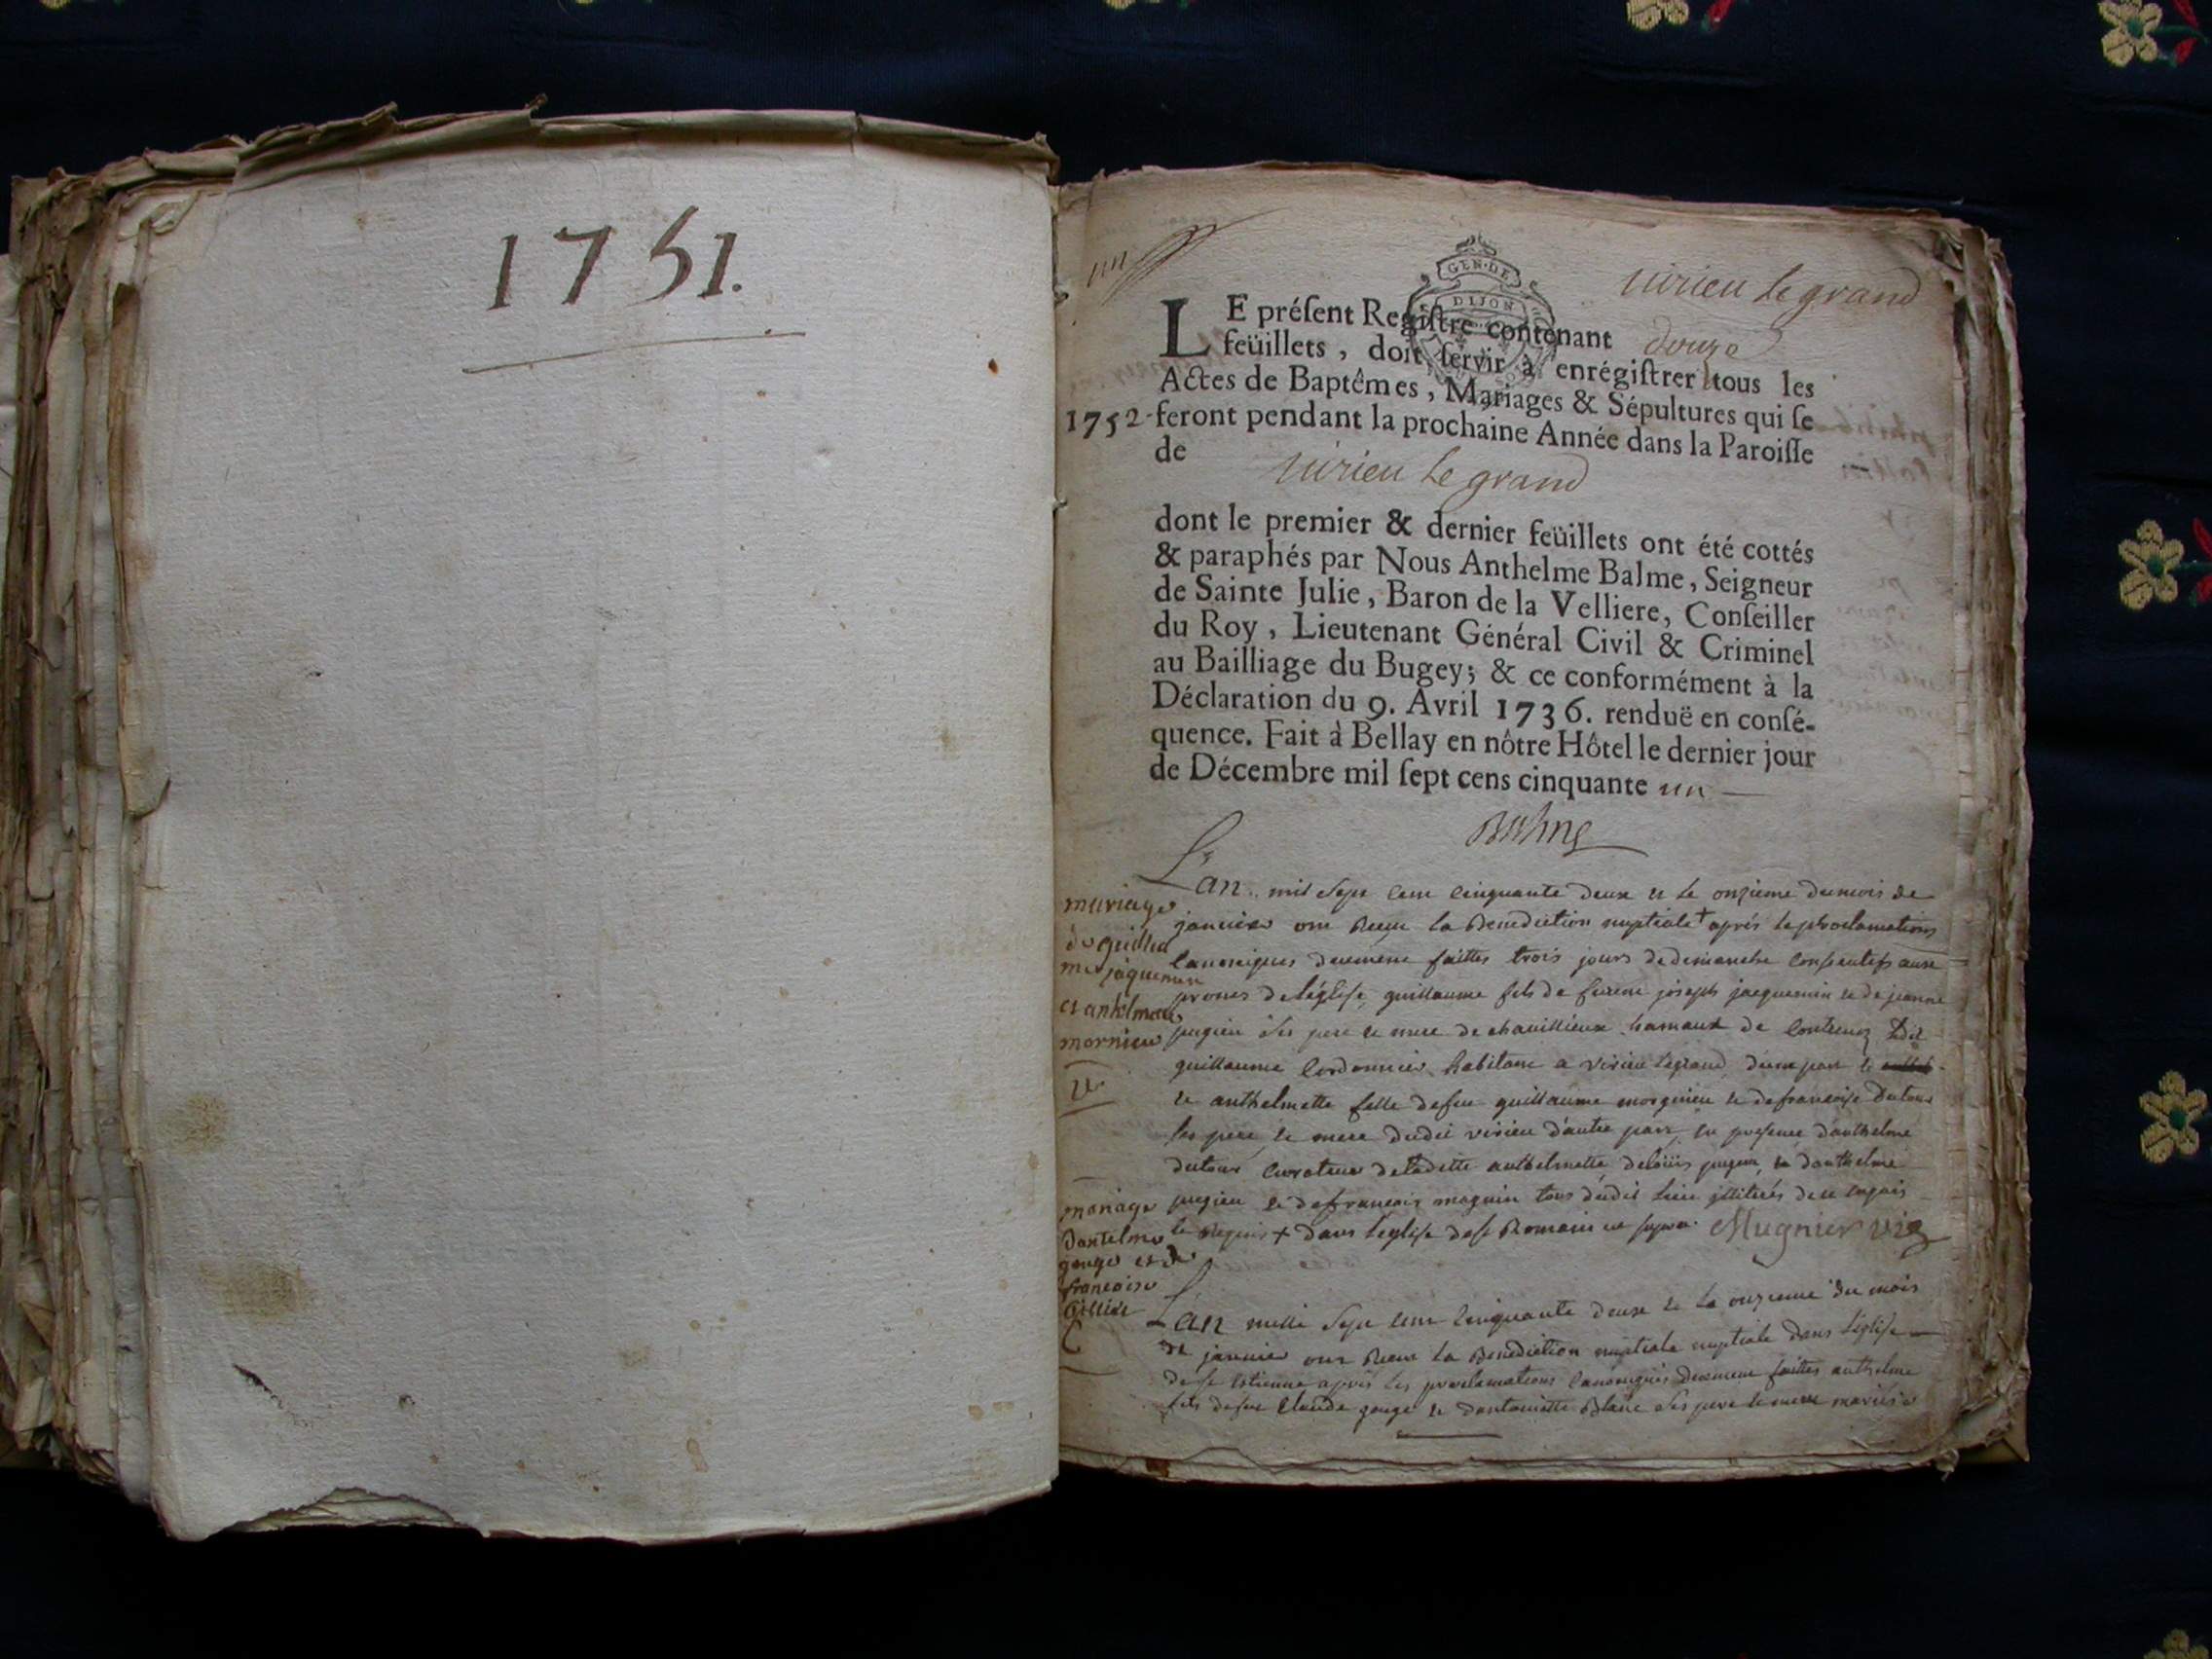 1751.
un
virieu le grand
GEN·DE
DIJON
LE préſent Regiſtre contenant douze
feüillets, doit ſervir à enrégiſtrer tous les
Actes de Baptêmes, Mariages & Sépultures qui ſe
1752 feront pendant la prochaine Année dans la Paroiſſe
de virieu le grand
dont le premier & dernier feüillets ont été cottés
& paraphés par Nous Anthelme Balme, Seigneur
de Sainte Julie, Baron de la Velliere, Conſeiller
du Roy, Lieutenant Général Civil & Criminel
au Bailliage du Bugey; & ce conformément à la
Déclaration du 9. Avril 1736. renduë en conſé-
quence. Fait à Bellay en nôtre Hôtel le dernier jour
de Décembre mil ſept cens cinquante un
Balme
L'an mil sept cent cinquante deux et le onzieme du mois de
mariage
janvier ont reçu la Benediction nuptiale + aprés les proclamations
de guillau
canoniques deuement faittes trois jours de dimanche consecutifs aux
me jaquemin
prones de l'église, guillaume fils de joseph jacquemin et de jeanne
et antelmette
pugieu ses pere et mere de hamaux de
mornieu
guillaume cordonnier habitant a virieu le grand d'une part
et anthelmette fille de feu guillaume et de francoise dutour
ses pere et mere dudit virieu d'autre part, en presence d'anthelme
dutour curateur de ladette anthelmette de loüis pugieu, et d'anthelme
mariage
pugieu et de francois magnin tous dudit lieu illiterés de ce enquis
dantelme
+ dans l'eglise de st Romain Mugnier vic
gouge et de
francoise
L'an mille sept cent cinquante deux et le onzieme du mois
de janvier ont reçu la Benediction nuptiale nuptiale dans l'église
de st Estienne aprés les proclamations canoniques deuement faittes anthelme
fils de feu Claude gouge et d'antoinette Blanc ses pere et mere